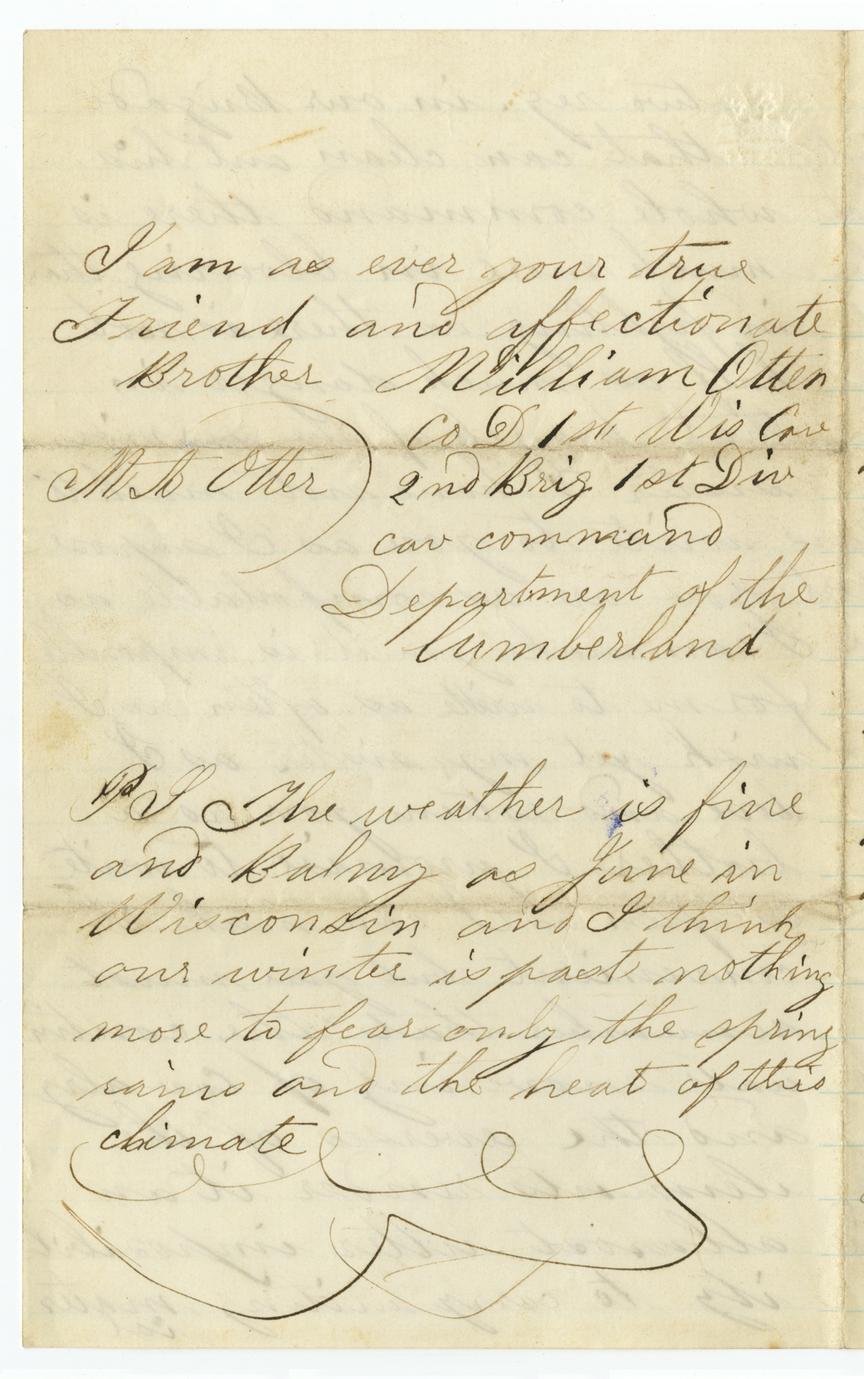 I am as ever your true
Friend and affectionate
Brother William Otter
Co D 1st Wis Cav
M A Otter
2nd Brig 1st Div
cav command
Department of the
Cumberland
PS The weather is fine
and Balmy as June in
Wisconsin and I think
our winter is past nothing
more to fear only the spring
rains and the heat of this
climate